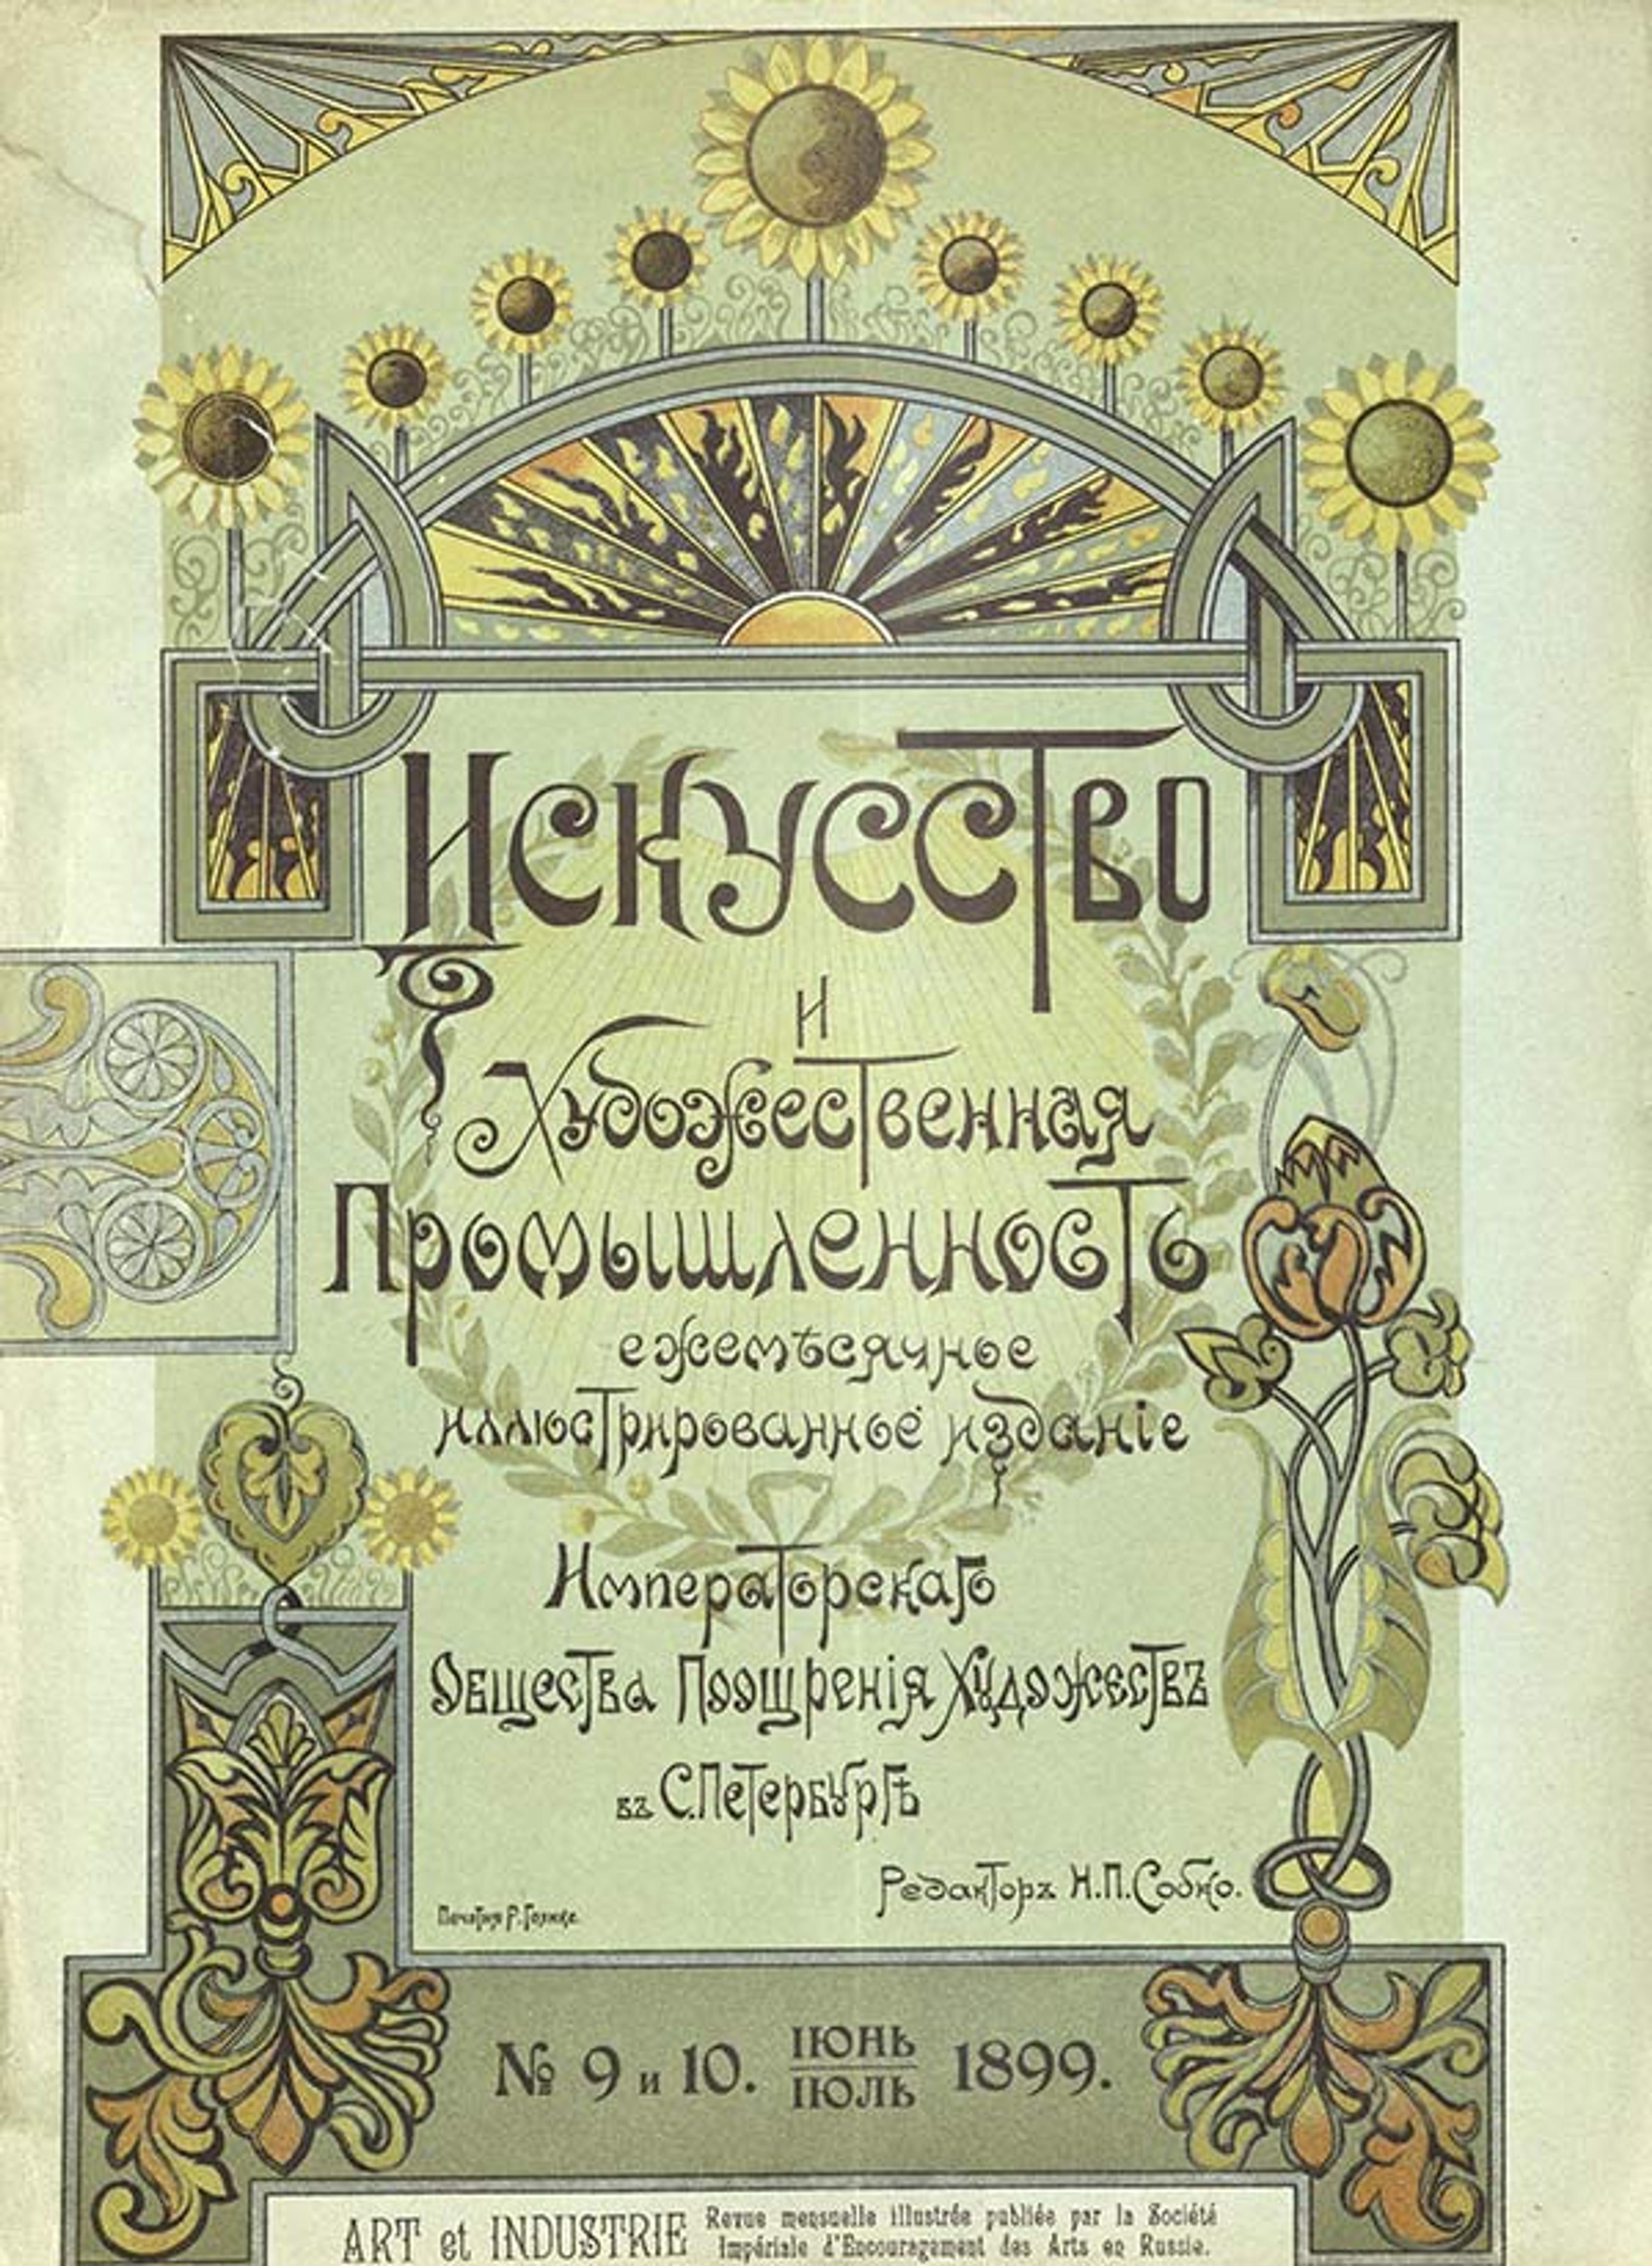 Искусство
и
Художественная
Промышленность
ежемѣсячное
иллюстрированное изданіе
Императорскаго
Общества Поощренія Художествъ
въ С.Петербургѣ
Редакторъ Н.П.Собко.
Печатня Р.Голике.
№ 9 и 10. ІЮНЬ ІЮЛЬ 1899.
ART et INDUSTRIE Revue mensuelle illustrée publiée par la Société
Impériale d'Encouragement des Arts en Russie.